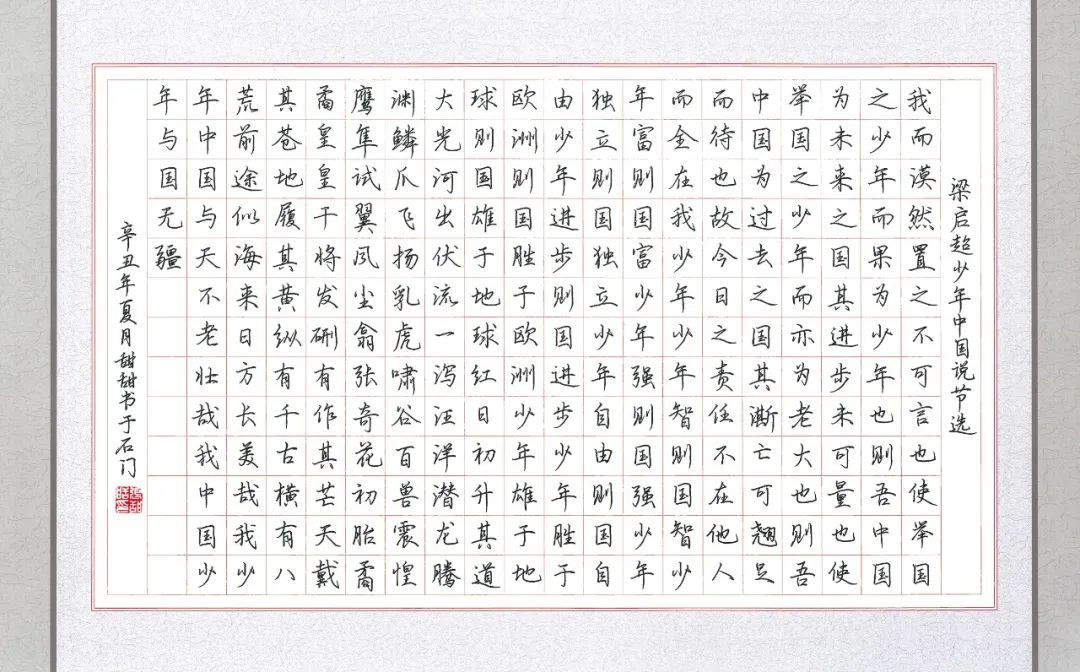 梁启超少年中国说节选
我而漠然置之不可言也使举国
之少年而果为少年也则吾中国
为未来之国其进步未可量也使
举国之少年而亦为老大也则吾
中国为过去之国其澌亡可翘足
而待也故今日之责任不在他人
而全在我少年少年智则国智少
年富则国富少年强则国强少年
独立则国独立少年自由则国自
由少年进步则国进步少年胜于
欧洲则国胜于欧洲少年雄于地
球则国雄于地球红日初升其道
大光河出伏流一泻汪洋潜龙腾
渊鳞爪飞扬乳虎啸谷百兽震惶
鹰隼试翼风尘翕张奇花初胎矞
矞皇皇干将发硎有作其芒天戴
其苍地履其黄纵有千古横有八
荒前途似海来日方长美哉我少
年中国与天不老壮哉我中国少
年与国无疆
辛丑年夏月甜甜书于石门